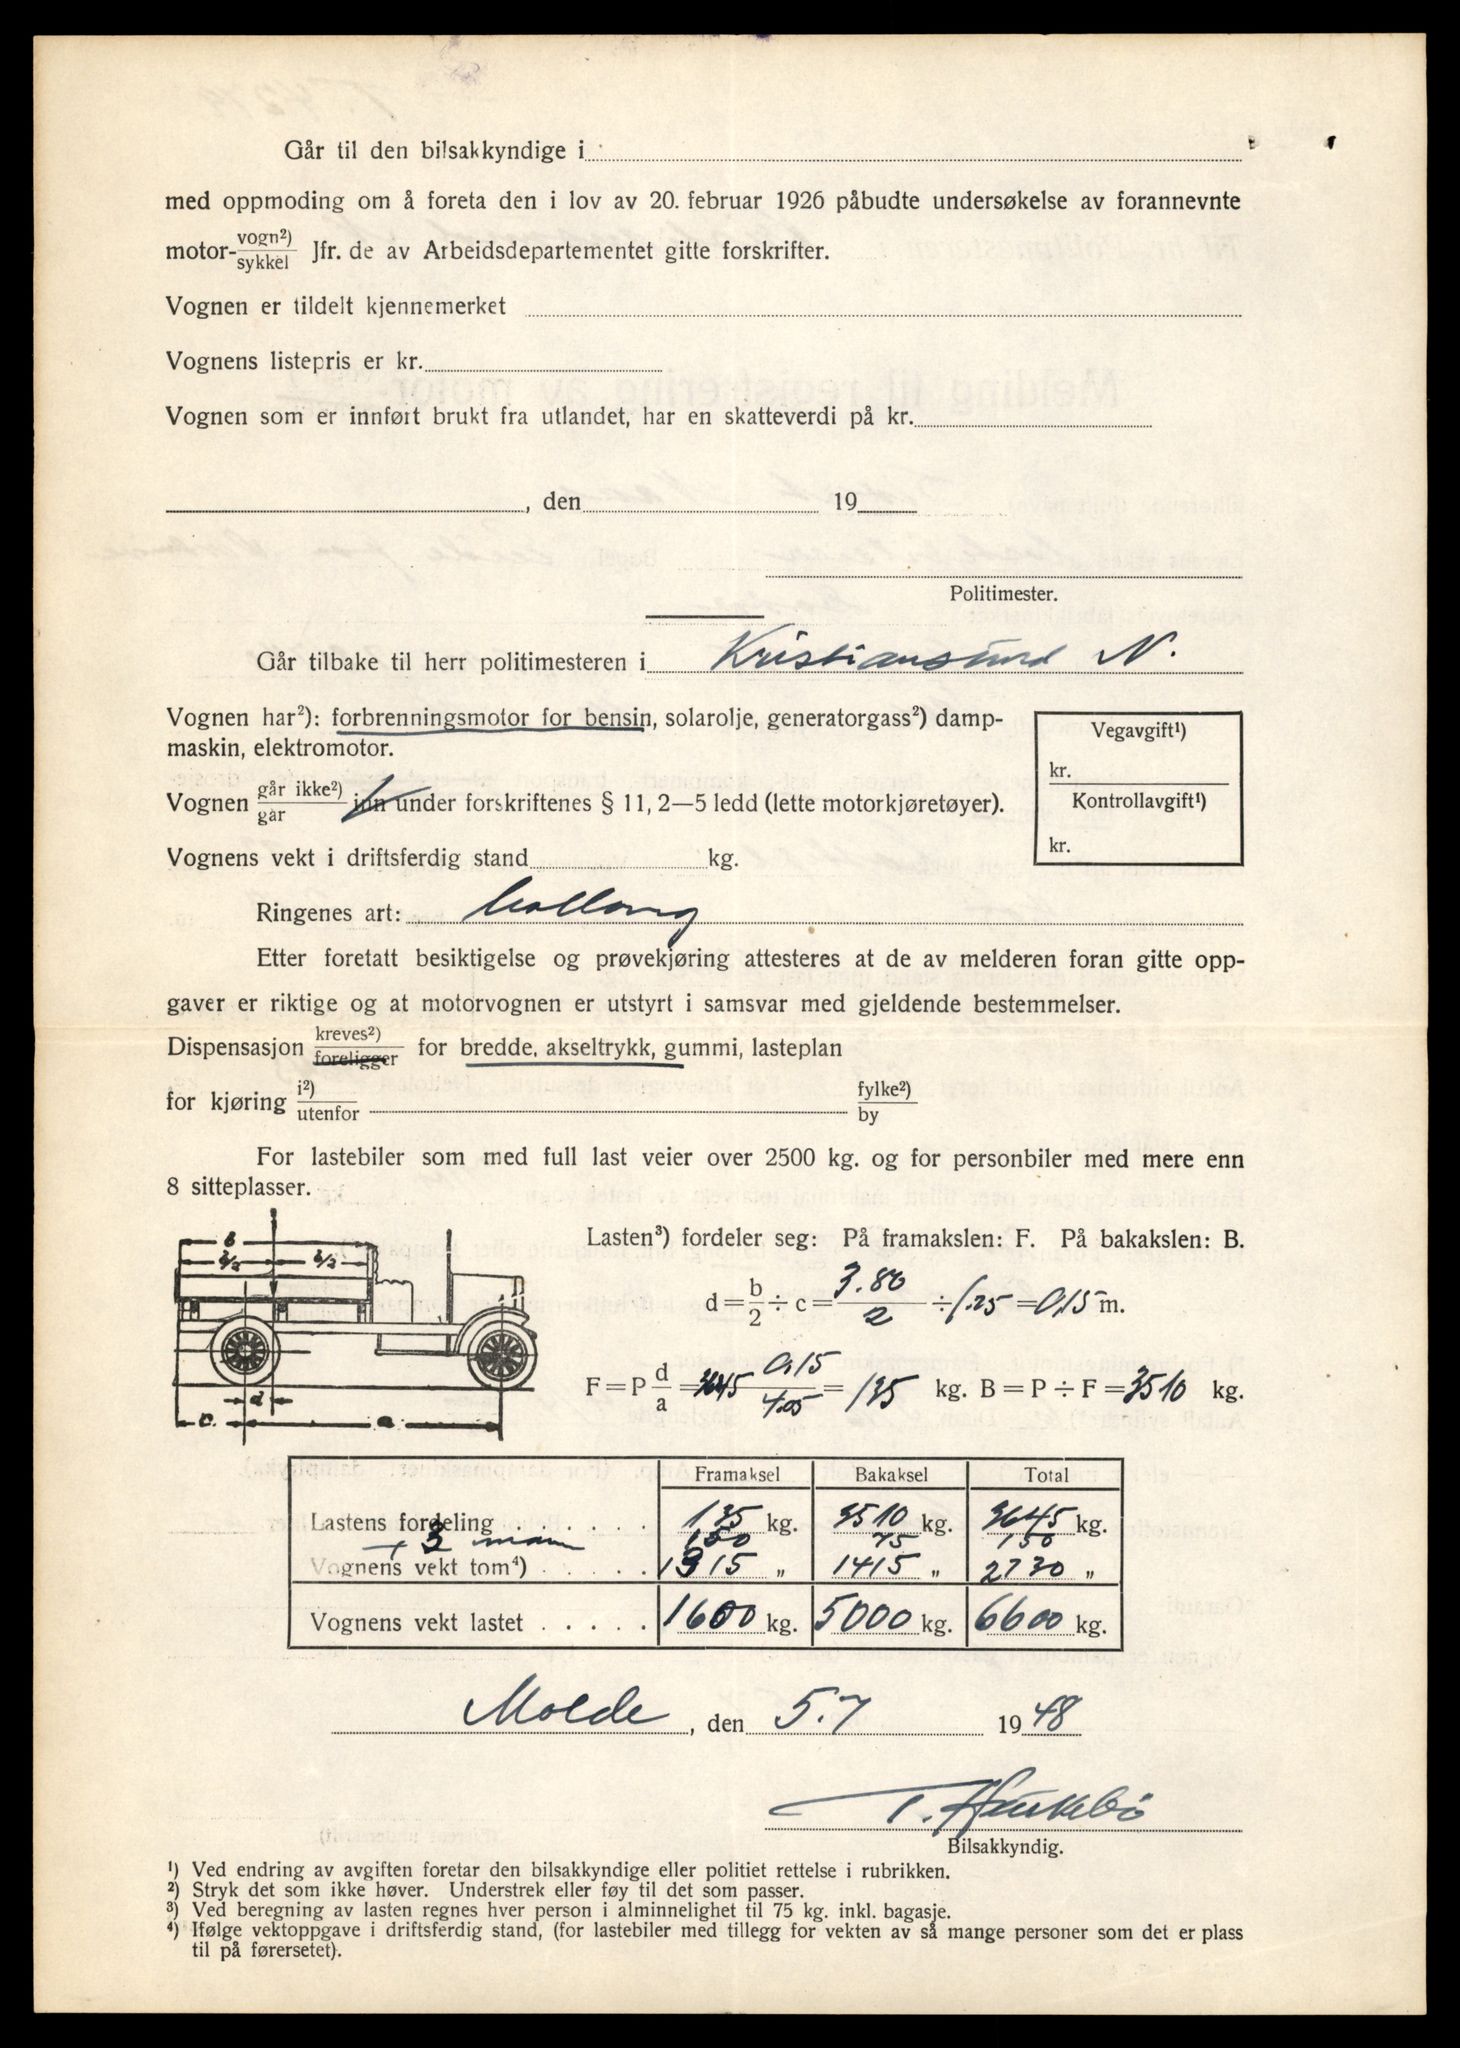 Går til den bilsakkyndige i
med oppmoding om å foreta den i lov av 20. februar 1926 påbudte undersøkelse av forannevnte
motor-vogn²)/sykkel Jfr. de av Arbeidsdepartementet gitte forskrifter.
Vognen er tildelt kjennemerket
Vognens listepris er kr.
Vognen som er innført brukt fra utlandet, har en skatteverdi på kr.
, den 19
Politimester.
Går tilbake til herr politimesteren i Kristiansund N.
Vognen har²): forbrenningsmotor for bensin, solarolje, generatorgass²) damp-
maskin, elektromotor.
Vegavgift¹)
kr.
Kontrollavgift¹)
kr.
Vognen går ikke²)/går inn under forskriftenes § 11, 2—5 ledd (lette motorkjøretøyer).
Vognens vekt i driftsferdig stand kg.
Ringenes art: ballong
Etter foretatt besiktigelse og prøvekjøring attesteres at de av melderen foran gitte opp-
gaver er riktige og at motorvognen er utstyrt i samsvar med gjeldende bestemmelser.
Dispensasjon kreves²)/foreligger for bredde, akseltrykk, gummi, lasteplan
for kjøring i²)/utenfor fylke²)/by
For lastebiler som med full last veier over 2500 kg. og for personbiler med mere enn
8 sitteplasser.
b
b/2 b/2
d
c. a
Lasten³) fordeler seg: På framakslen: F. På bakakslen: B.
d = b/2 ÷ c = 3.80/2 ÷ 1.25 = 0,15 m.
F = P d/a = 3645 0,15/4.05 = 135 kg. B = P ÷ F = 3510 kg.
Framaksel Bakaksel Total
Lastens fordeling . . . . . . . 135 kg. 3510 kg. 3645 kg.
+ 3 mann 150 75 150
Vognens vekt tom⁴) . . . . . 1315 „ 1415 „ 2730 „
Vognens vekt lastet . . . . . 1600 kg. 5000 kg. 6600 kg.
Molde, den 5.7 1948
Bilsakkyndig.
¹) Ved endring av avgiften foretar den bilsakkyndige eller politiet rettelse i rubrikken.
²) Stryk det som ikke høver. Understrek eller føy til det som passer.
³) Ved beregning av lasten regnes hver person i alminnelighet til 75 kg. inkl. bagasje.
⁴) Ifølge vektoppgave i driftsferdig stand, (for lastebiler med tillegg for vekten av så mange personer som det er plass
til på førersetet).